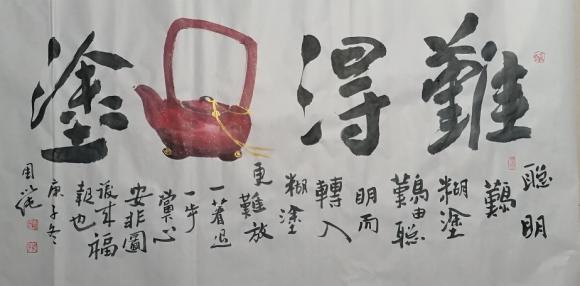 難得塗
聰明
難
糊塗
難由聰
明而
轉入
糊塗
更難放
一著退
一步
當心
安非圖
後来福
報也
庚子冬
周